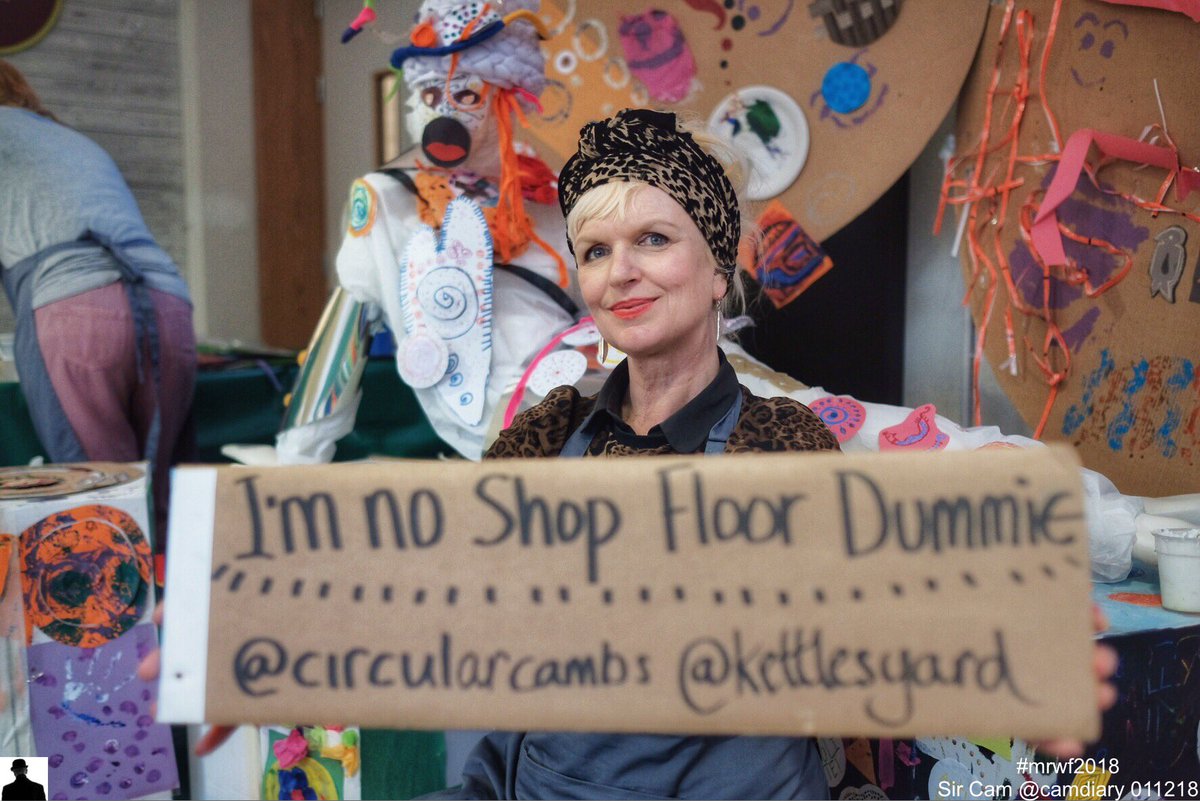 I'm no Shop Floor Dummie
@circularcambs @kettlesyard
#mrwf2018
Sir Cam @camdiary 011218